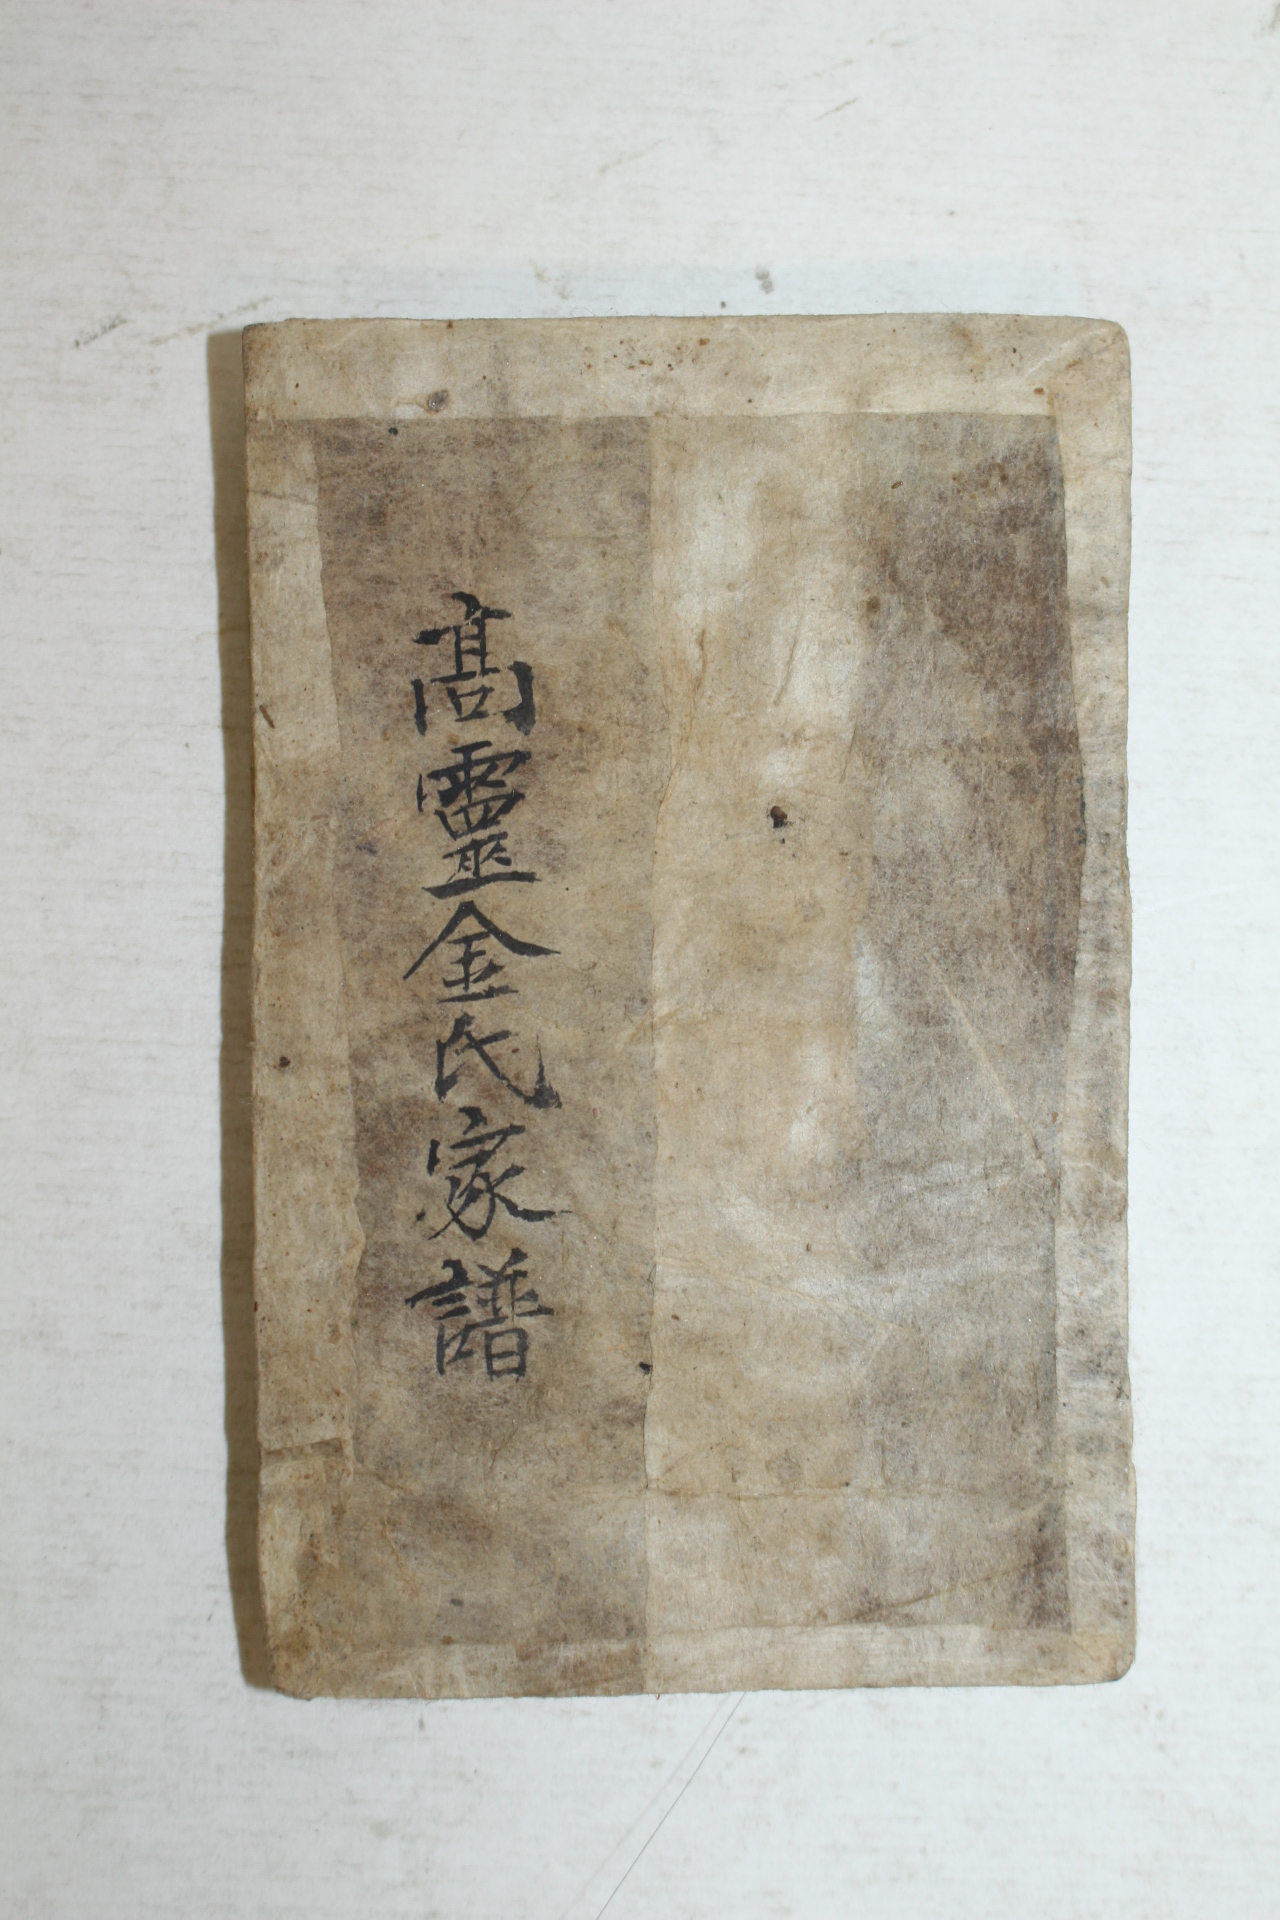 髙靈金氏家譜